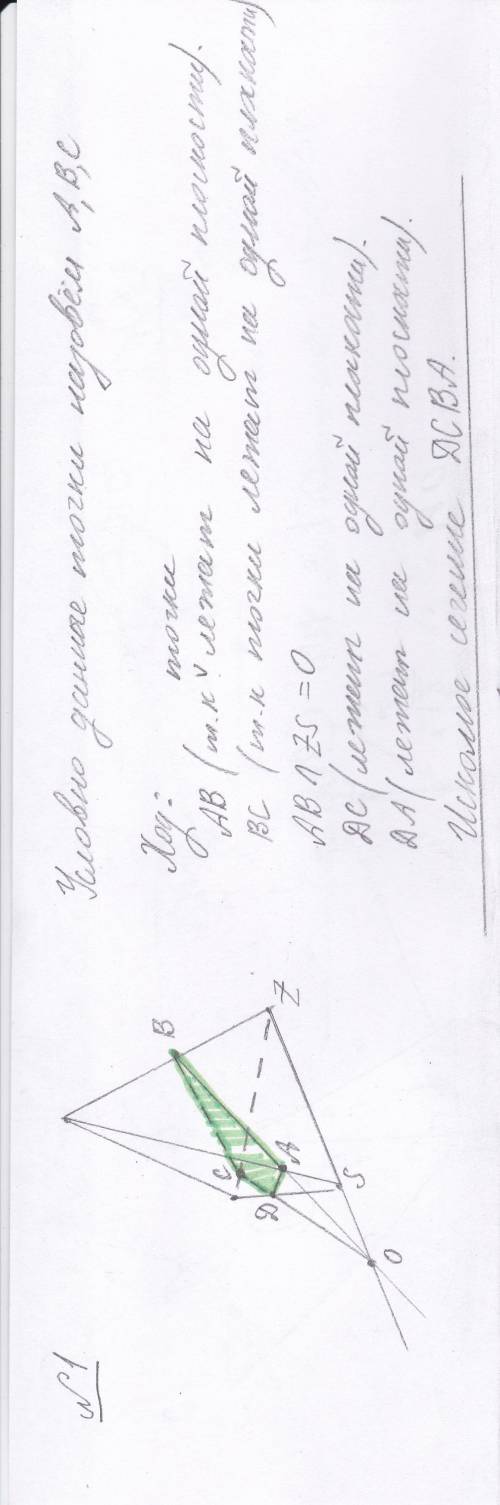 №1
Условно данные точки назовём А, В, С
Ход:
точки
АВ (т.к. ˅ лежат на одной плоскости).
ВС (т.к точки лежат на одной плоскости)
АВ ∩ ZS = O
DC (лежат на одной плоскости).
DA (лежат на одной плоскости).
Искомое сечение DCBA.
B
Z
C
A
D
S
O